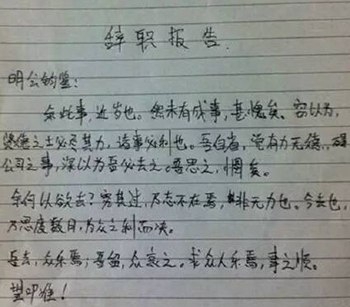 辞职报告.
明公钧鉴:
余此事,近岁也。然未有成事,甚愧矣。窃以为,
之士必尽其力,诸事必利也。吾自省,
公司之事,深以为吾必去之。吾思之,惘矣。
余何以欲去?究其过,乃志不在焉,非无力也。今去也,
乃思度数日,为众之利而决。
吾去,众乐焉;吾留,众哀之。求众人乐焉,事之顺。
望叩准!